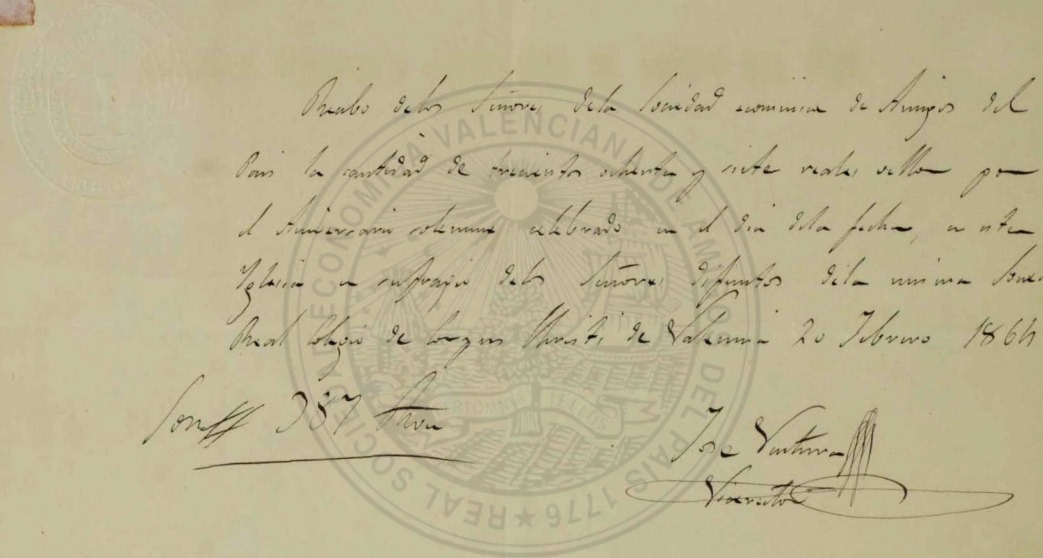 Recibo delos Señores dela Sociedad económica de Amigos del
Pais la cantidad de trecientos ochenta y siete reales vellon por
el Aniversario solemne celebrado en el dia dela fecha, en esta
Yglesia en sufragio delos Señores difuntos dela misma
Real Colegio de Corpus Christi de Valencia 20 Febrero 1864
Son 387
Jose Ventura
REAL SOCIEDAD ECONOMICA VALENCIANA DE AMIGOS DEL PAIS 1776